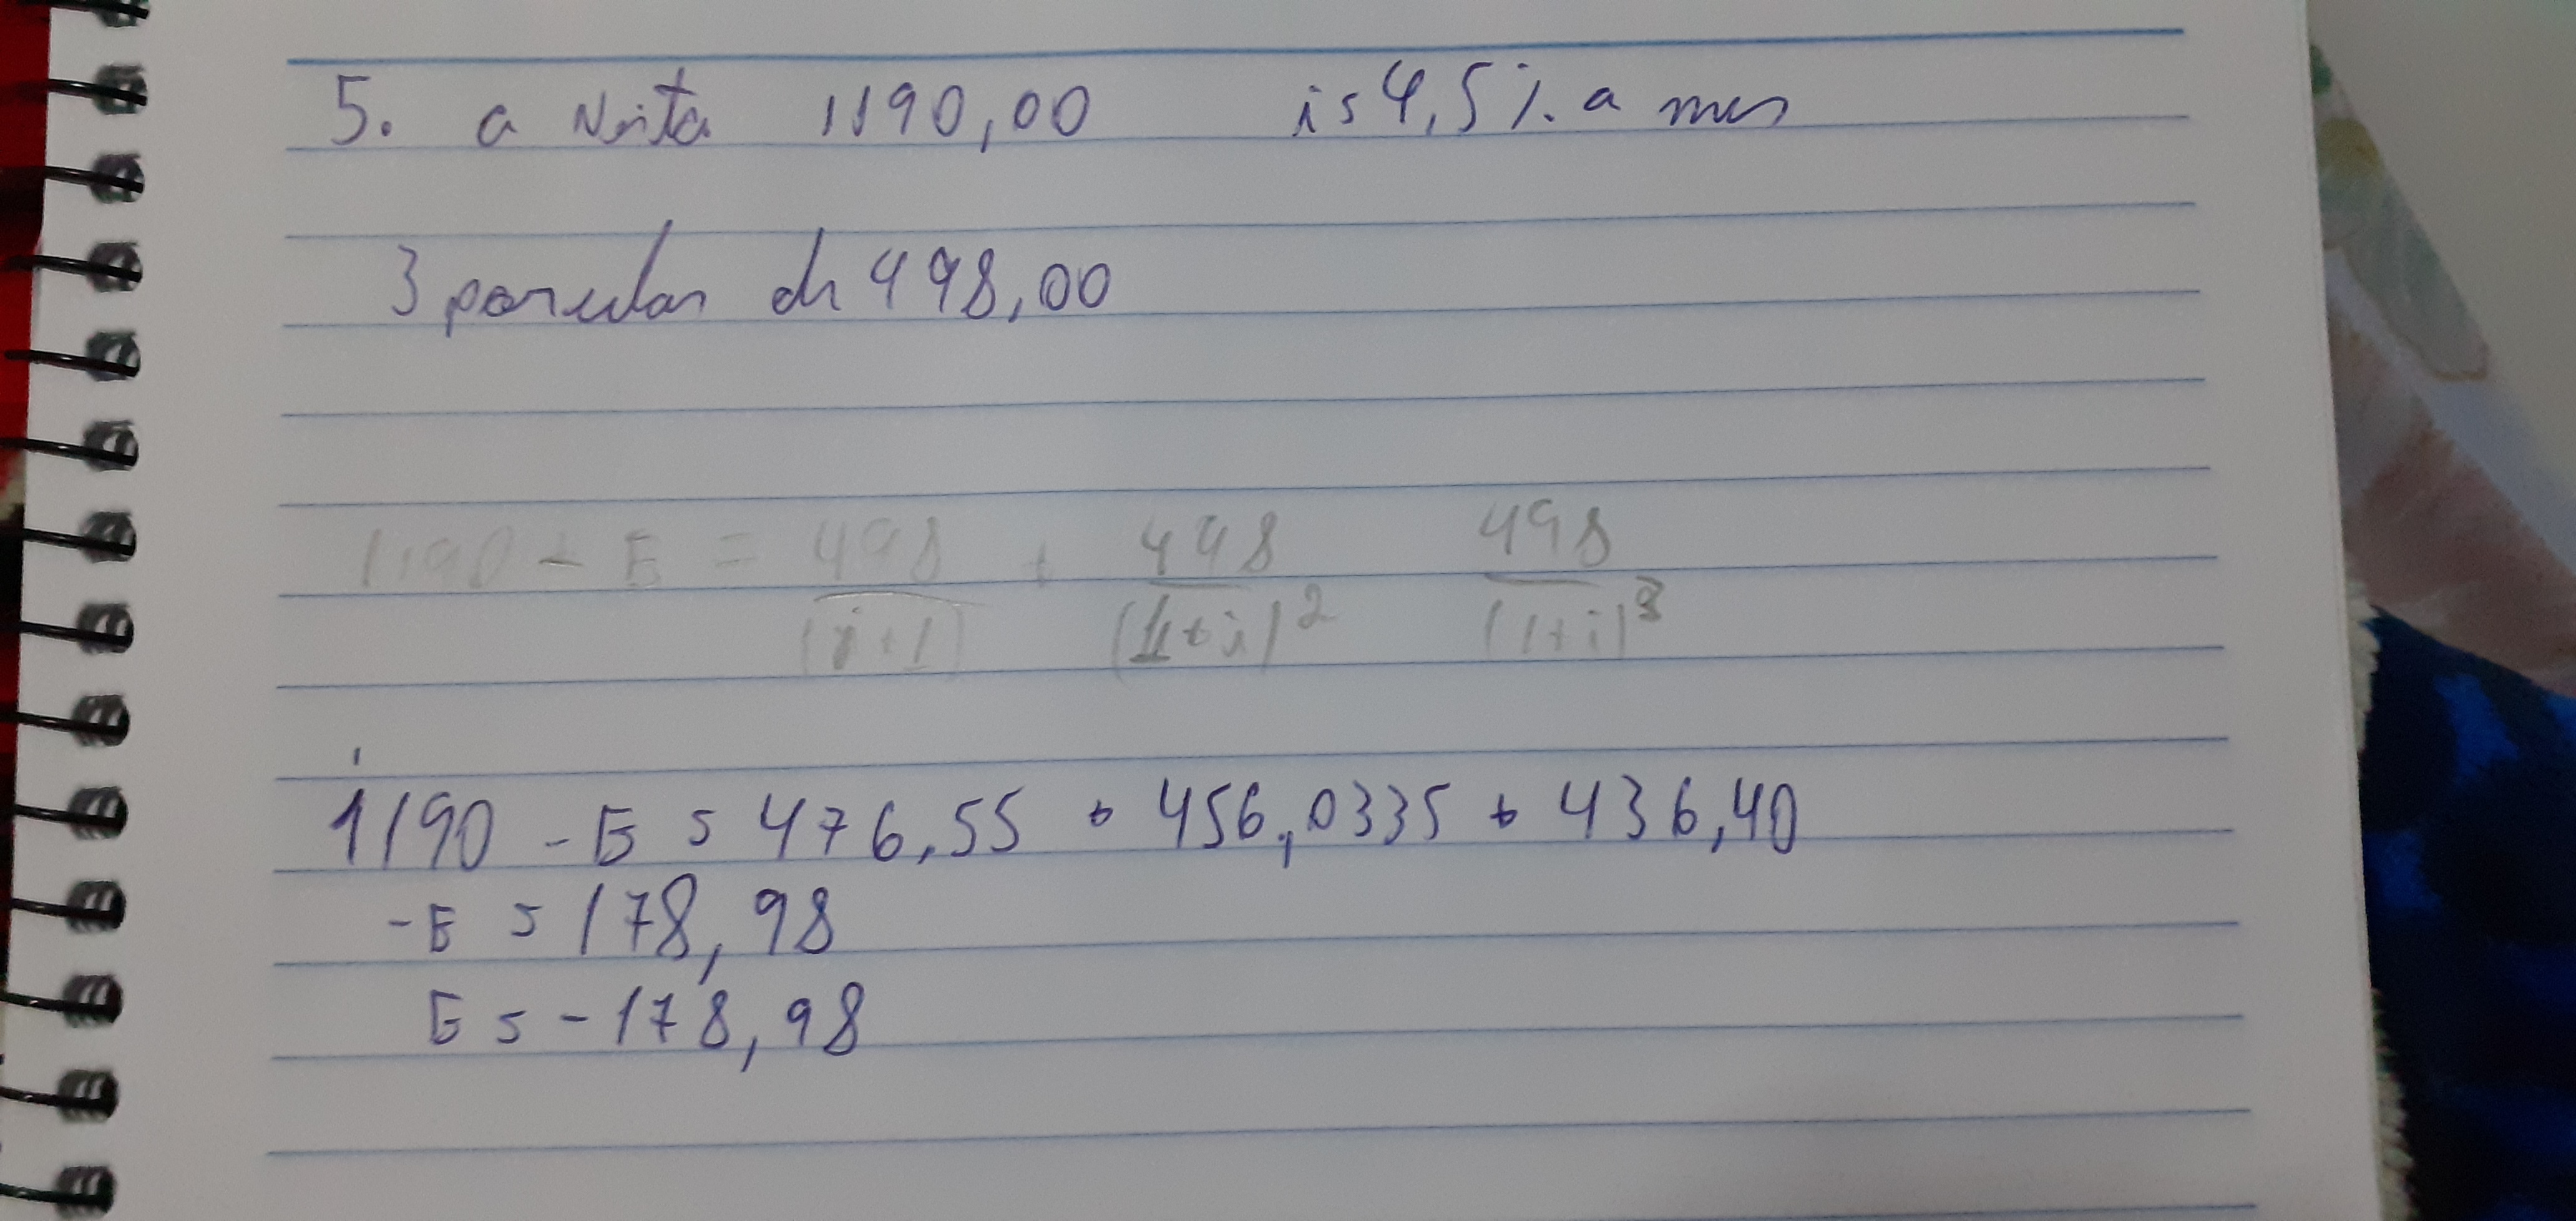 5. a vista 1190,00 i = 4,5 % a mes
3 parcelas de 498,00
1190 - E = 498/(i+1) + 498/(1+i)² 498/(1+i)³
1190 - E = 476,55 + 456,0335 + 436,40
-E = 178,98
E = -178,98